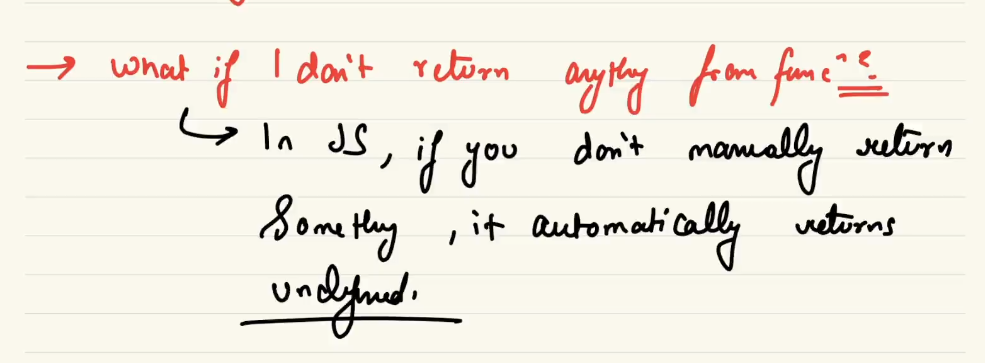 → What if I don't return anything from funcⁿ?
↳ In JS, if you don't manually return
Something, it automatically returns
undefined.